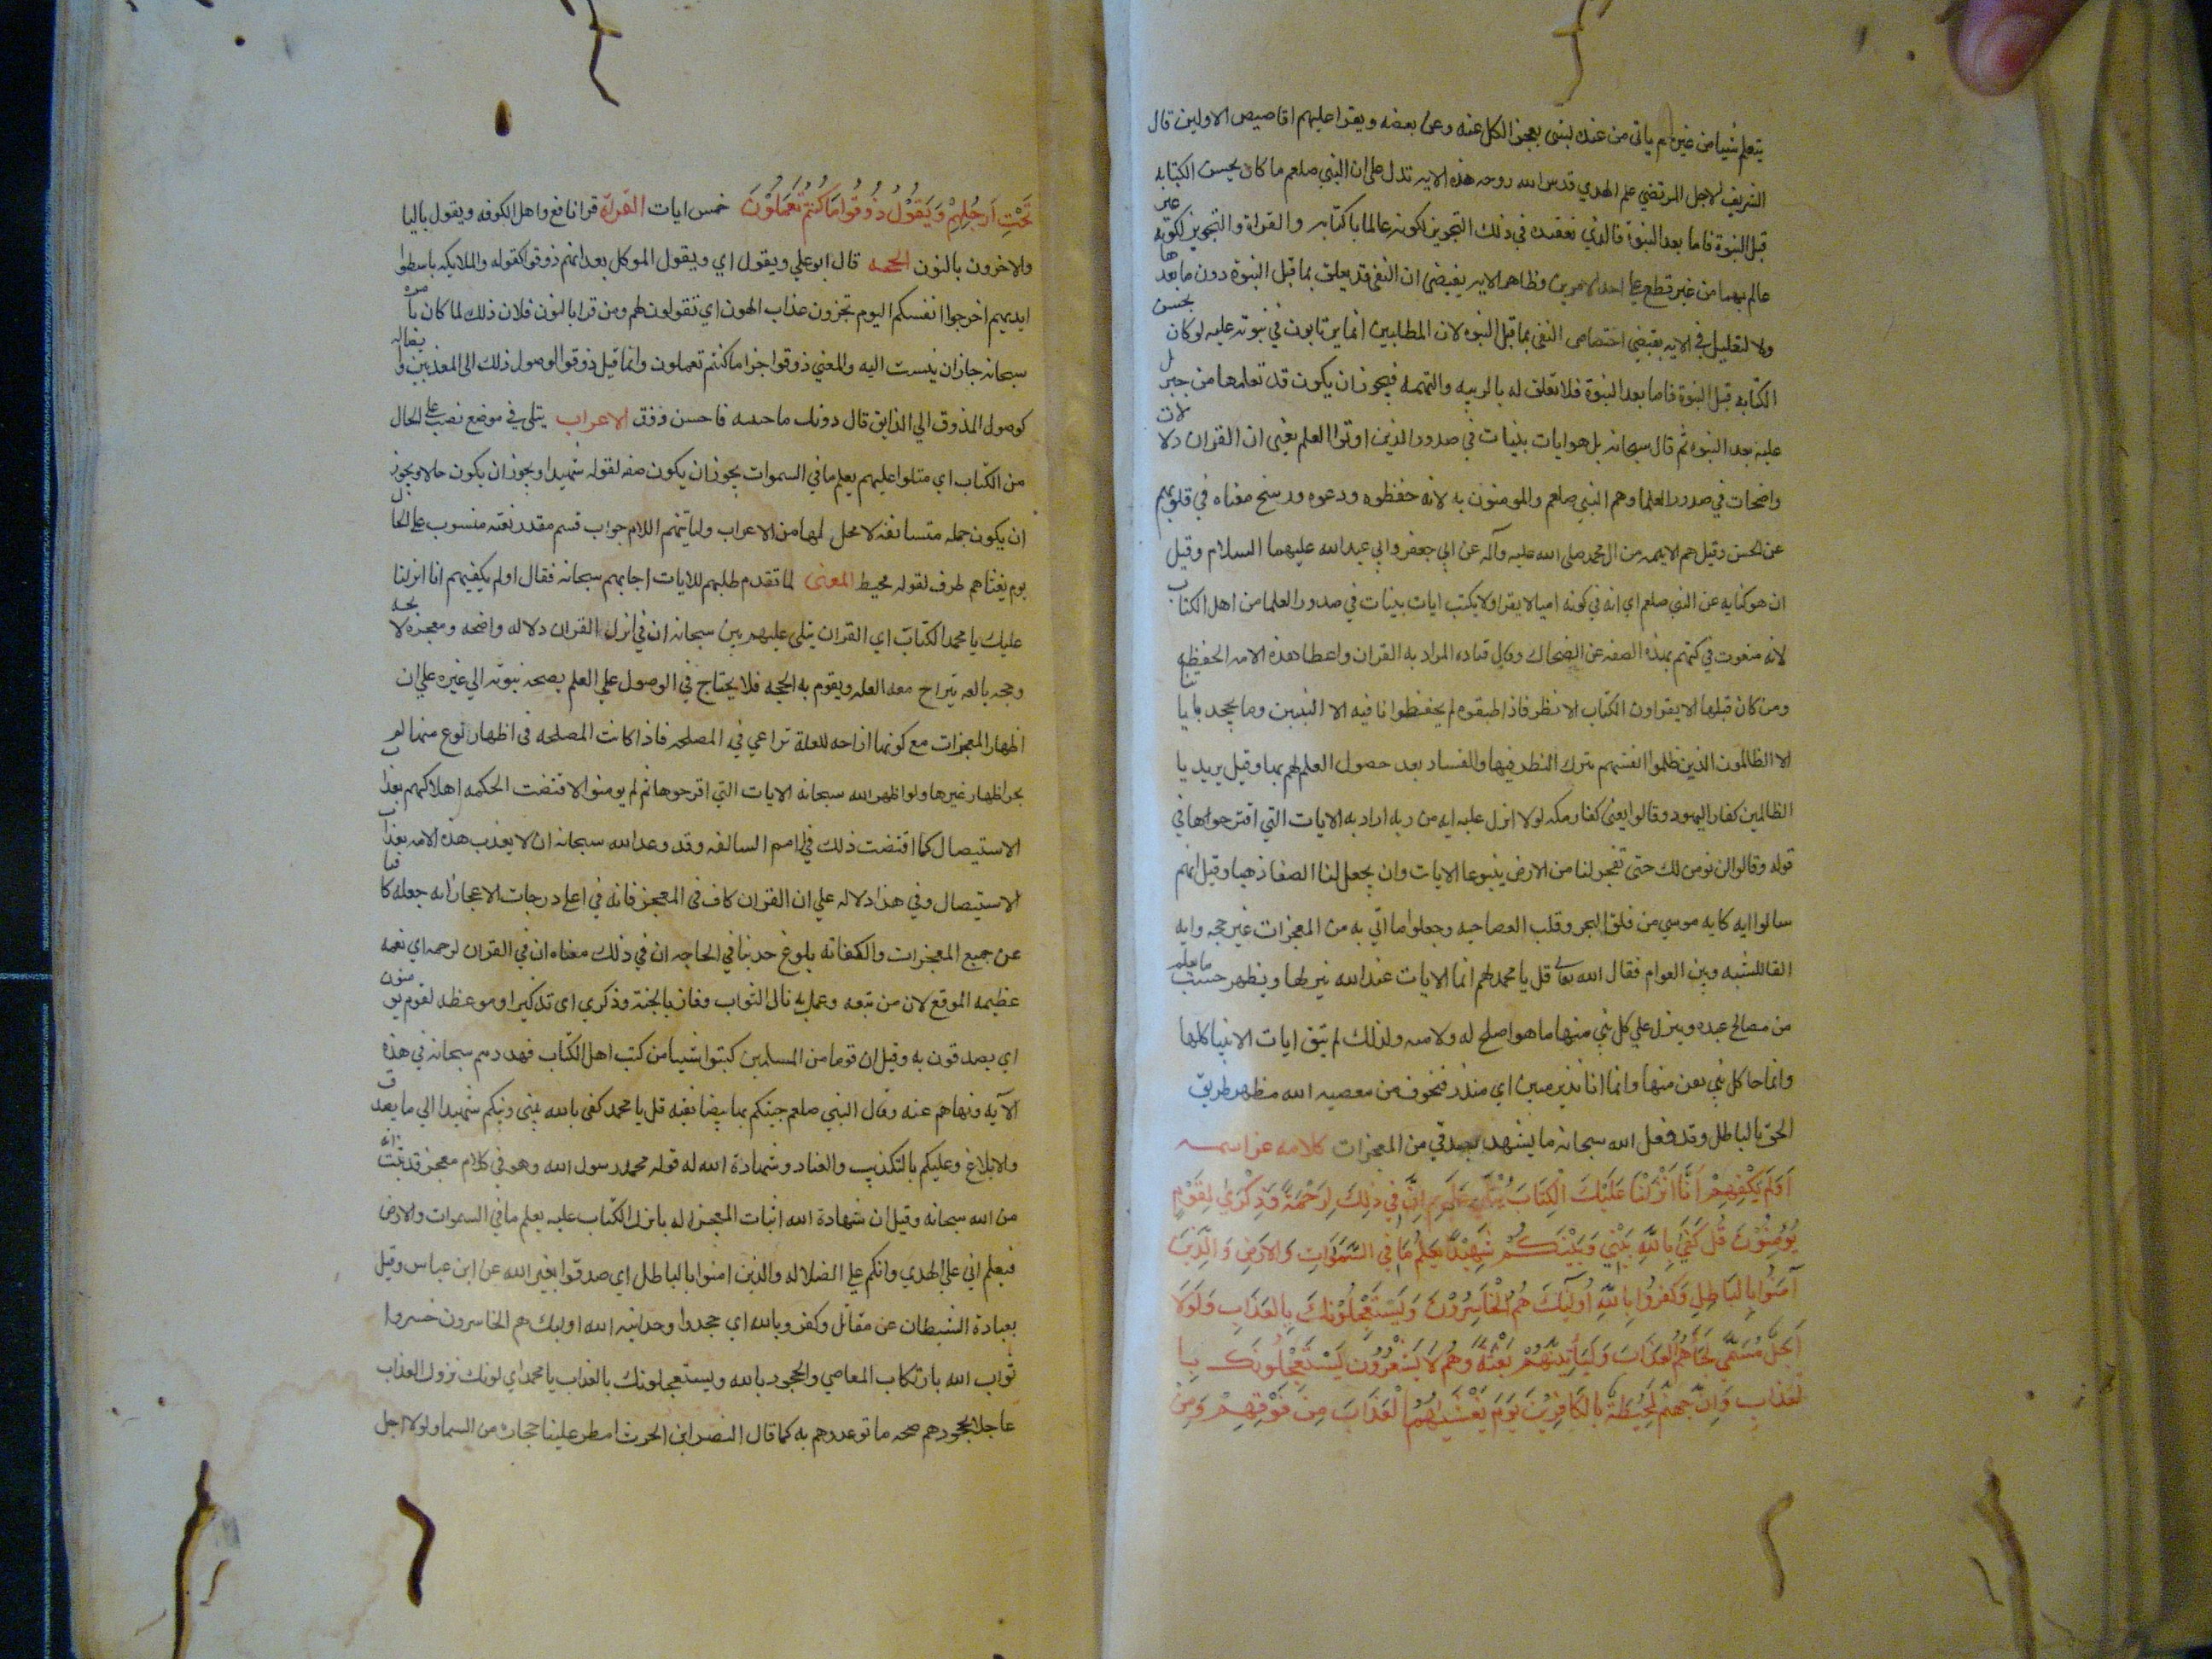 يتعلم شيا من غيره لم ياتي من عنده بشي يعجز الكل عنه وعن بعضه ويقرا عليهم اقاصيص الاولين قال
الشريف الاجل المرتضي علم الهدي قدس الله روحه هذه الايه تدل علي ان النبي صلعم ما كان يحسن الكتابه
قبل النبوة فاما بعد النبوة فالذي نعتقده في ذلك التجويز لكونه عالما بالكتابه والقراة والتجويز لكونه غير
عالم بهما من غير قطع علي احد الامرين وظاهر الايه يقيضي ان النفي قد يعلق بما قبل النبوة دون ما بعدها
ولا لتعليل في الايه يقتضي اختصاص النفي بما قبل النبوه لان المطلبين انما يرتابون في نبوته عليه لو كان يحسن
الكتابه قبل النبوة فاما بعد النبوة فلا تعلق له بالريبه والتهمه فيجوز ان يكون قد تعلمها من جبرل
عليه بعد النبوه ثم قال سبحانه بل هو ايات بينات في صدور الذين اوتوا العلم يعني ان القران دلالات
واضحات في صدور العلما وهم النبي صلعم والمومنون به لانه حفظوه ودعوه ورسخ معناه في قلوبهم
عن الحسن وقيل هم الايمه من ال محمد صلي الله عليه وآله عن ابي جعفر وابي عبد الله عليهما السلام وقيل
ان هو كنايه عن النبي صلعم اي انه في كونه اميا لا يقرا ولا يكتب ايات بينات في صدور العلما من اهل الكتاب
لانه منعوت في كتبهم بهذه الصفه عن الضحاك وقال قتاده المراد به القران واعطا هذه الامه الحفيظه
ومن كان قبلها لا يقراون الكتاب الا نظر فاذا طبقوه لم يحفظوا نا فيه الا النبيين وما يجحد باياتنا
الا الظالمون الذين ظلموا انفسهم بترك النظر فيها والفساد بعد حصول العلم لهم بها وقيل يريد يا
الظالمين كفار اليهود وقالوا يعني كفار مكه لولا انزل عليه ايه من ربه اراد به الايات التي اقترحوها في
قوله وقالوا لن نومن لك حتي تفجر لنا من الارض ينبوعا الايات وان يجعل لنا الصفا ذهبا وقيل انهم
سالوا ايه كايه موسي من فلق البحر وقلب العصا حيه وجعلوا ما اتي به من المعجزات غير حجه وايه
القا للشبه وبين العوام فقال الله تعالي قل يا محمد لهم انما الايات عند الله ينزلها ويظهر حسب ما يعلم
من مصالح عبده وينزل علي كل نبي منها ما هو اصلح له ولامته ولذلك لم تتفق ايات الانبيا كلها
وانما جا كل نبي بفن منها وانما انا نذير مبين اي منذر مخوف من معصيه الله مظهر طريق
الحق بالباطل وقد فعل الله سبحانه ما يشهد بصدقي من المعجزات كلامه عز اسمه
اَوَلَمْ يَكْفِهِمْ اَنَّا اَنْزَلْنَا عَلَيْكَ الْكِتَابَ يُتْلَي عَلَيْهِمْ اِنَّ فِي ذٰلِكَ لَرَحْمَةً وَذِكْرَي لِقَوْمٍ
يُوْمِنُوْنَ قُلْ كَفَي بِاللّٰهِ بَيْنِي وَبَيْنَكُمْ شَهِيْدًا يَعْلَمُ مَا فِي السَّمٰوَاتِ وَالْاَرْضِ وَالَّذِيْنَ
آمَنُوا بِالْبَاطِلِ وَكَفَرُوا بِاللّٰهِ اُولٰٓئِكَ هُمُ الْخَاسِرُوْنَ وَيَسْتَعْجِلُوْنَكَ بِالْعَذَابِ وَلَوْلَا
اَجَلٌ مُسَمًّي لَجَآءَهُمُ الْعَذَابَ وَلَيَاْتِيَنَّهُمْ بَغْتَةً وَهُمْ لَا يَشْعُرُوْنَ يَسْتَعْجِلُوْنَكَ بِا
لْعَذَابِ وَاِنَّ جَهَنَّمَ لَمُحِيْطَةٌ بِالْكَافِرِيْنَ يَوْمَ يَغْشٰيهُمُ الْعَذَابَ مِنْ فَوْقِهِمْ وَمِنْ
تَحْتِ اَرْجُلِهِمْ وَيَقُوْلُ ذُوْقُوا مَا كُنْتُمْ تَعْمَلُوْنَ خمس ايات القراة قرا نافع واهل الكوفه ويقول باليا
والاخرون بالنون الحجه قال ابو علي ويقول اي ويقول الموكل بعذابهم ذوقوا كقوله والملايكه باسطوا
ايديهم اخرجوا انفسكم اليوم تجزون عذاب الهون اي تقولون لهم ومن قرا بالنون فلان ذلك لما كان بامره
سبحانه جاز ان ينسب اليه والمعني ذوقوا جزا ما كنتم تعملون وانما قيل ذوقوا لوصول ذلك الي المعذبين
كوصول المذوق الي الذايق قال دونك ما فاحسن وذق الاعراب يتلي في موضع نصب علي الحال
من الكتاب اي متلوا عليهم يعلم ما في السموات يجوز ان يكون صفه لقوله شهيدا ويجوز ان يكون حالا ويجوز
ان يكون جمله متسانفه لا محل لها من الاعراب ولياتينهم اللام جواب قسم مقدر بغته منسوب علي الحال
يوم يغشاهم ظرف لقوله محيط المعني لما تقدم طلبهم للايات اجابهم سبحانه فقال اولم يكفيهم انا انزلنا
عليك يا محمد الكتاب اي القران يتلي عليهم بين سبحانه ان في انزل القران دلاله واضحه ومعجزه لايحه
وحجه بالغه تيزاح معه العله ويقوم به الحجه فلا يحتاج في الوصول علي العلم بصحه نبوته الي غيره علي ان
اظهار المعجزات مع كونها ازاحه للعلة تراعي فيه المصلحه فاذا كانت المصلحه في اظهار نوع منها لم
يجز اظهار غيرها ولو اظهر الله سبحانه الايات التي اقترحوها ثم لم يومنوا لاقتضت الحكمه اهلاكهم بعذاب
الاستيصال كما اقتضت ذلك في امم السالفه وقد وعد الله سبحانه ان لا يعذب هذه الامه بعذاب
الاستيصال وفي هذا دلاله علي ان القران كاف في المعجز فانه في اعلا درجات الاعجاز انه جعله كافيا
عن جميع المعجزات والكفاته بلوغ حد ينافي الحاجه ان في ذلك معناه ان في القران لرحمه اي نعمه
عظيمه الموقع لان من تبعه وعمل به نال الثواب وفاز بالجنة وذكري اي تذكيرا وموعظه لقوم يومنون
اي يصدقون به وقيل ان قوما من المسلمين كبتوا شييا من كتب اهل الكتاب فهددهم سبحانه في هذه
الآيه ونهاهم عنه وقال النبي صلعم جيتكم بها بيضا نقيه قل يا محمد كفي بالله بيني وبينكم شهيدا الي ما يعدق
والابلاغ وعليكم بالتكذيب والعناد وشهادة الله له قوله محمد رسول الله وهو في كلام معجز قد ثبت انه
من الله سبحانه وقيل ان شهادة الله اثبات المعجزا له بانزل الكتاب عليه يعلم ما في السموات والارض
فيعلم اني علي الهدي وانكم علي الضلاله والذين امنوا بالباطل اي صدقوا بغير الله عن ابن عباس وقيل
بعبادة الشيطان عن مقاتل وكفروا بالله اي جحدوا وحدانيه الله اوليك هم الخاسرون خسروا
ثواب الله بارتكاب المعاصي والحجود بالله ويستعجلونك بالعذاب يا محمد اي لونك نزول العذاب
عاجلا لحجودهم صحه ما توعدوهم به كما قال النضر ابن الحرث امطر علينا حجارة من السما ولولا اجل